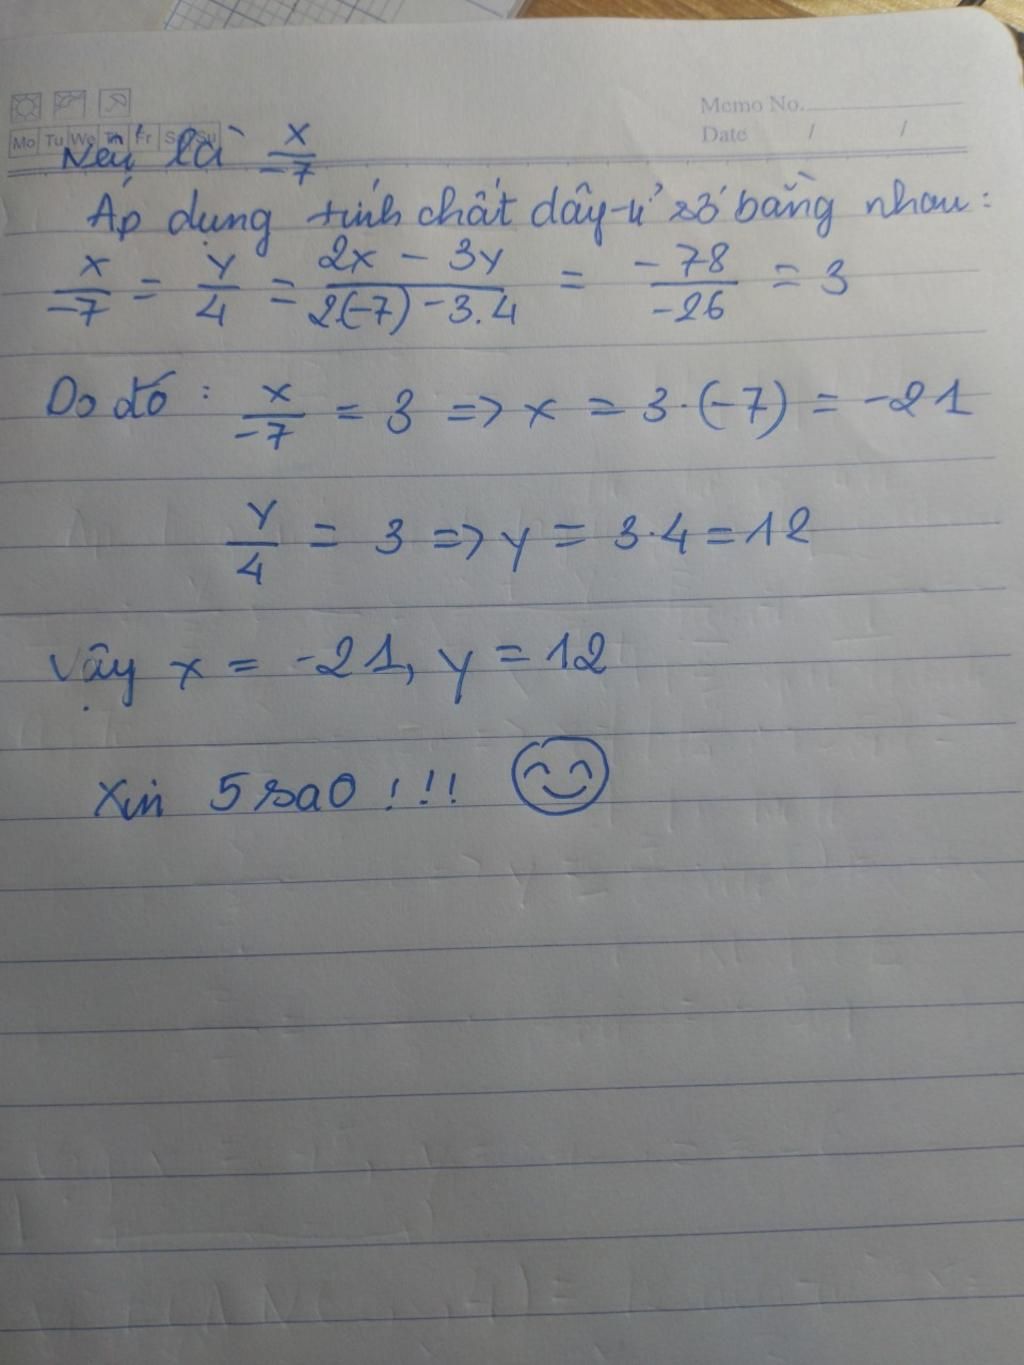 Memo No.
Mo Tu We Th Fr Sa Su
Date / /
Nếu là x/-7
Áp dụng tính chất dãy tỉ số bằng nhau:
x/-7 = y/4 = (2x - 3y)/(2(-7) - 3.4) = -78/-26 = 3
Do đó: x/-7 = 3 => x = 3.(-7) = -21
y/4 = 3 => y = 3.4 = 12
Vậy x = -21, y = 12
Xin 5 sao !!!